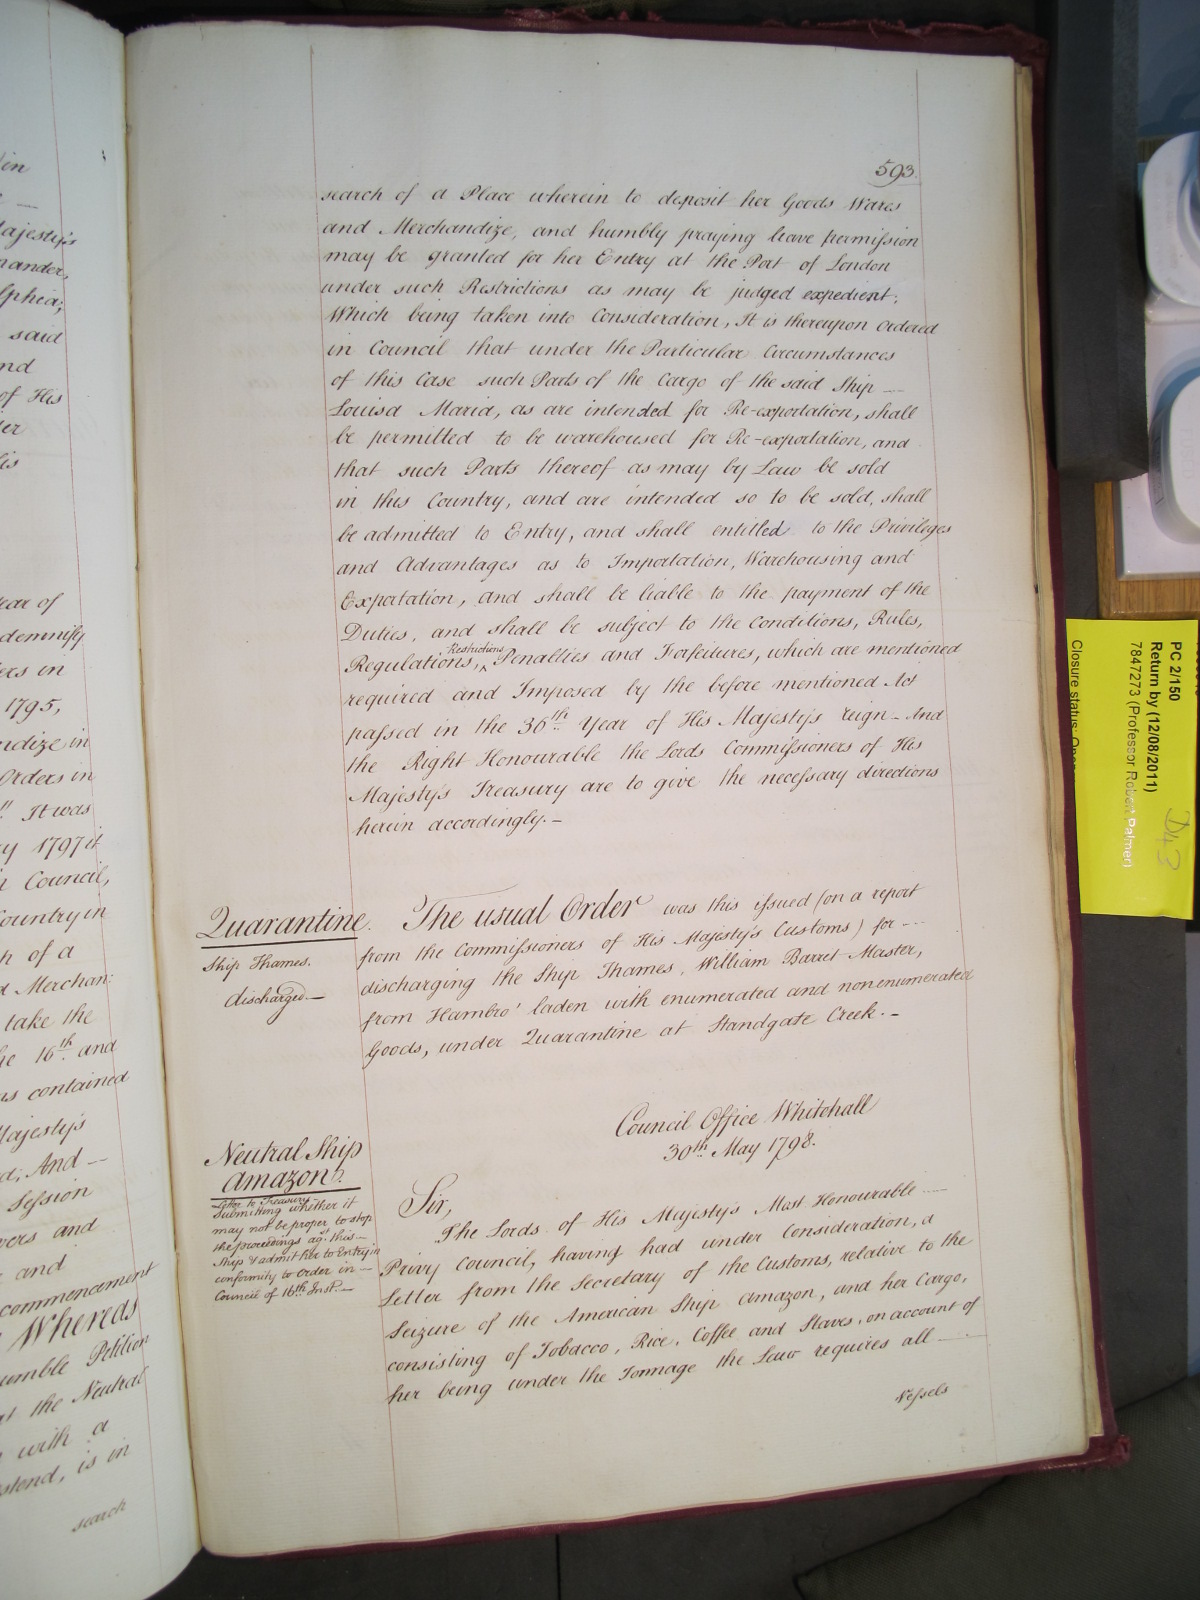 in
Majesty's
mander,
lphia;
said
nd
of His
er
is
ear of
demnify
ers in
1795,
ndize in
Orders in
It was
y 1797 it
n Council,
Country in
h of a
d Merchan:
take the
he 16th and
ns contained
Majesty's
d; And —
Session
vers and
and
commencement
Whereas
umble Petition
at the Neutral
with a
stend, is in
search
593.
search of a Place wherein to deposit her Goods Wares
and Merchandize, and humbly praying leave permission
may be granted for her Entry at the Port of London
under such Restrictions as may be judged expedient;
Which being taken into Consideration, It is thereupon Ordered
in Council that under the Particular Circumstances
of this Case such Parts of the Cargo of the said Ship —
Louisa Maria, as are intended for Re-exportation, shall
be permitted to be warehoused for Re-exportation, and
that such Parts thereof as may by Law be sold
in this Country, and are intended so to be sold, shall
be admitted to Entry, and shall entitled to the Privileges
and Advantages as to Importation, Warehousing and
Exportation, and shall be liable to the payment of the
Duties, and shall be subject to the Conditions, Rules,
Regulations, ^Restrictions Penalties and Forfeitures, which are mentioned
required and Imposed by the before mentioned Act
passed in the 36th Year of His Majesty's reign – And
the Right Honourable the Lords Commissioners of His
Majesty's Treasury are to give the necessary directions
herein accordingly. –
Quarantine.
Ship Thames.
discharged —
The usual Order was this issued (on a report
from the Commissioners of His Majesty's Customs) for —
discharging the Ship Thames, William Barret Master,
from Hambro' laden with enumerated and nonenumerated
Goods, under Quarantine at Standgate Creek. –
Council Office Whitehall
30th May 1798.
Neutral Ship
Amazon.
Letter to Treasury —
Submitting whether it
may not be proper to stop
the proceedings agt. this —
Ship & admit her to Entry in
conformity to Order in —
Council of 16th Inst. —
Sir,
The Lords of His Majesty's Most Honourable —
Privy Council, having had under Consideration, a
Letter from the Secretary of the Customs, relative to the
Seizure of the American Ship Amazon, and her Cargo,
consisting of Tobacco, Rice, Coffee and Staves, on account of
her being under the Tonnage the Law requires all —
Vessels
PC 2/150
Return by (12/08/2011)
7847273 (Professor Robert Palmer)
Closure status: Open
D43